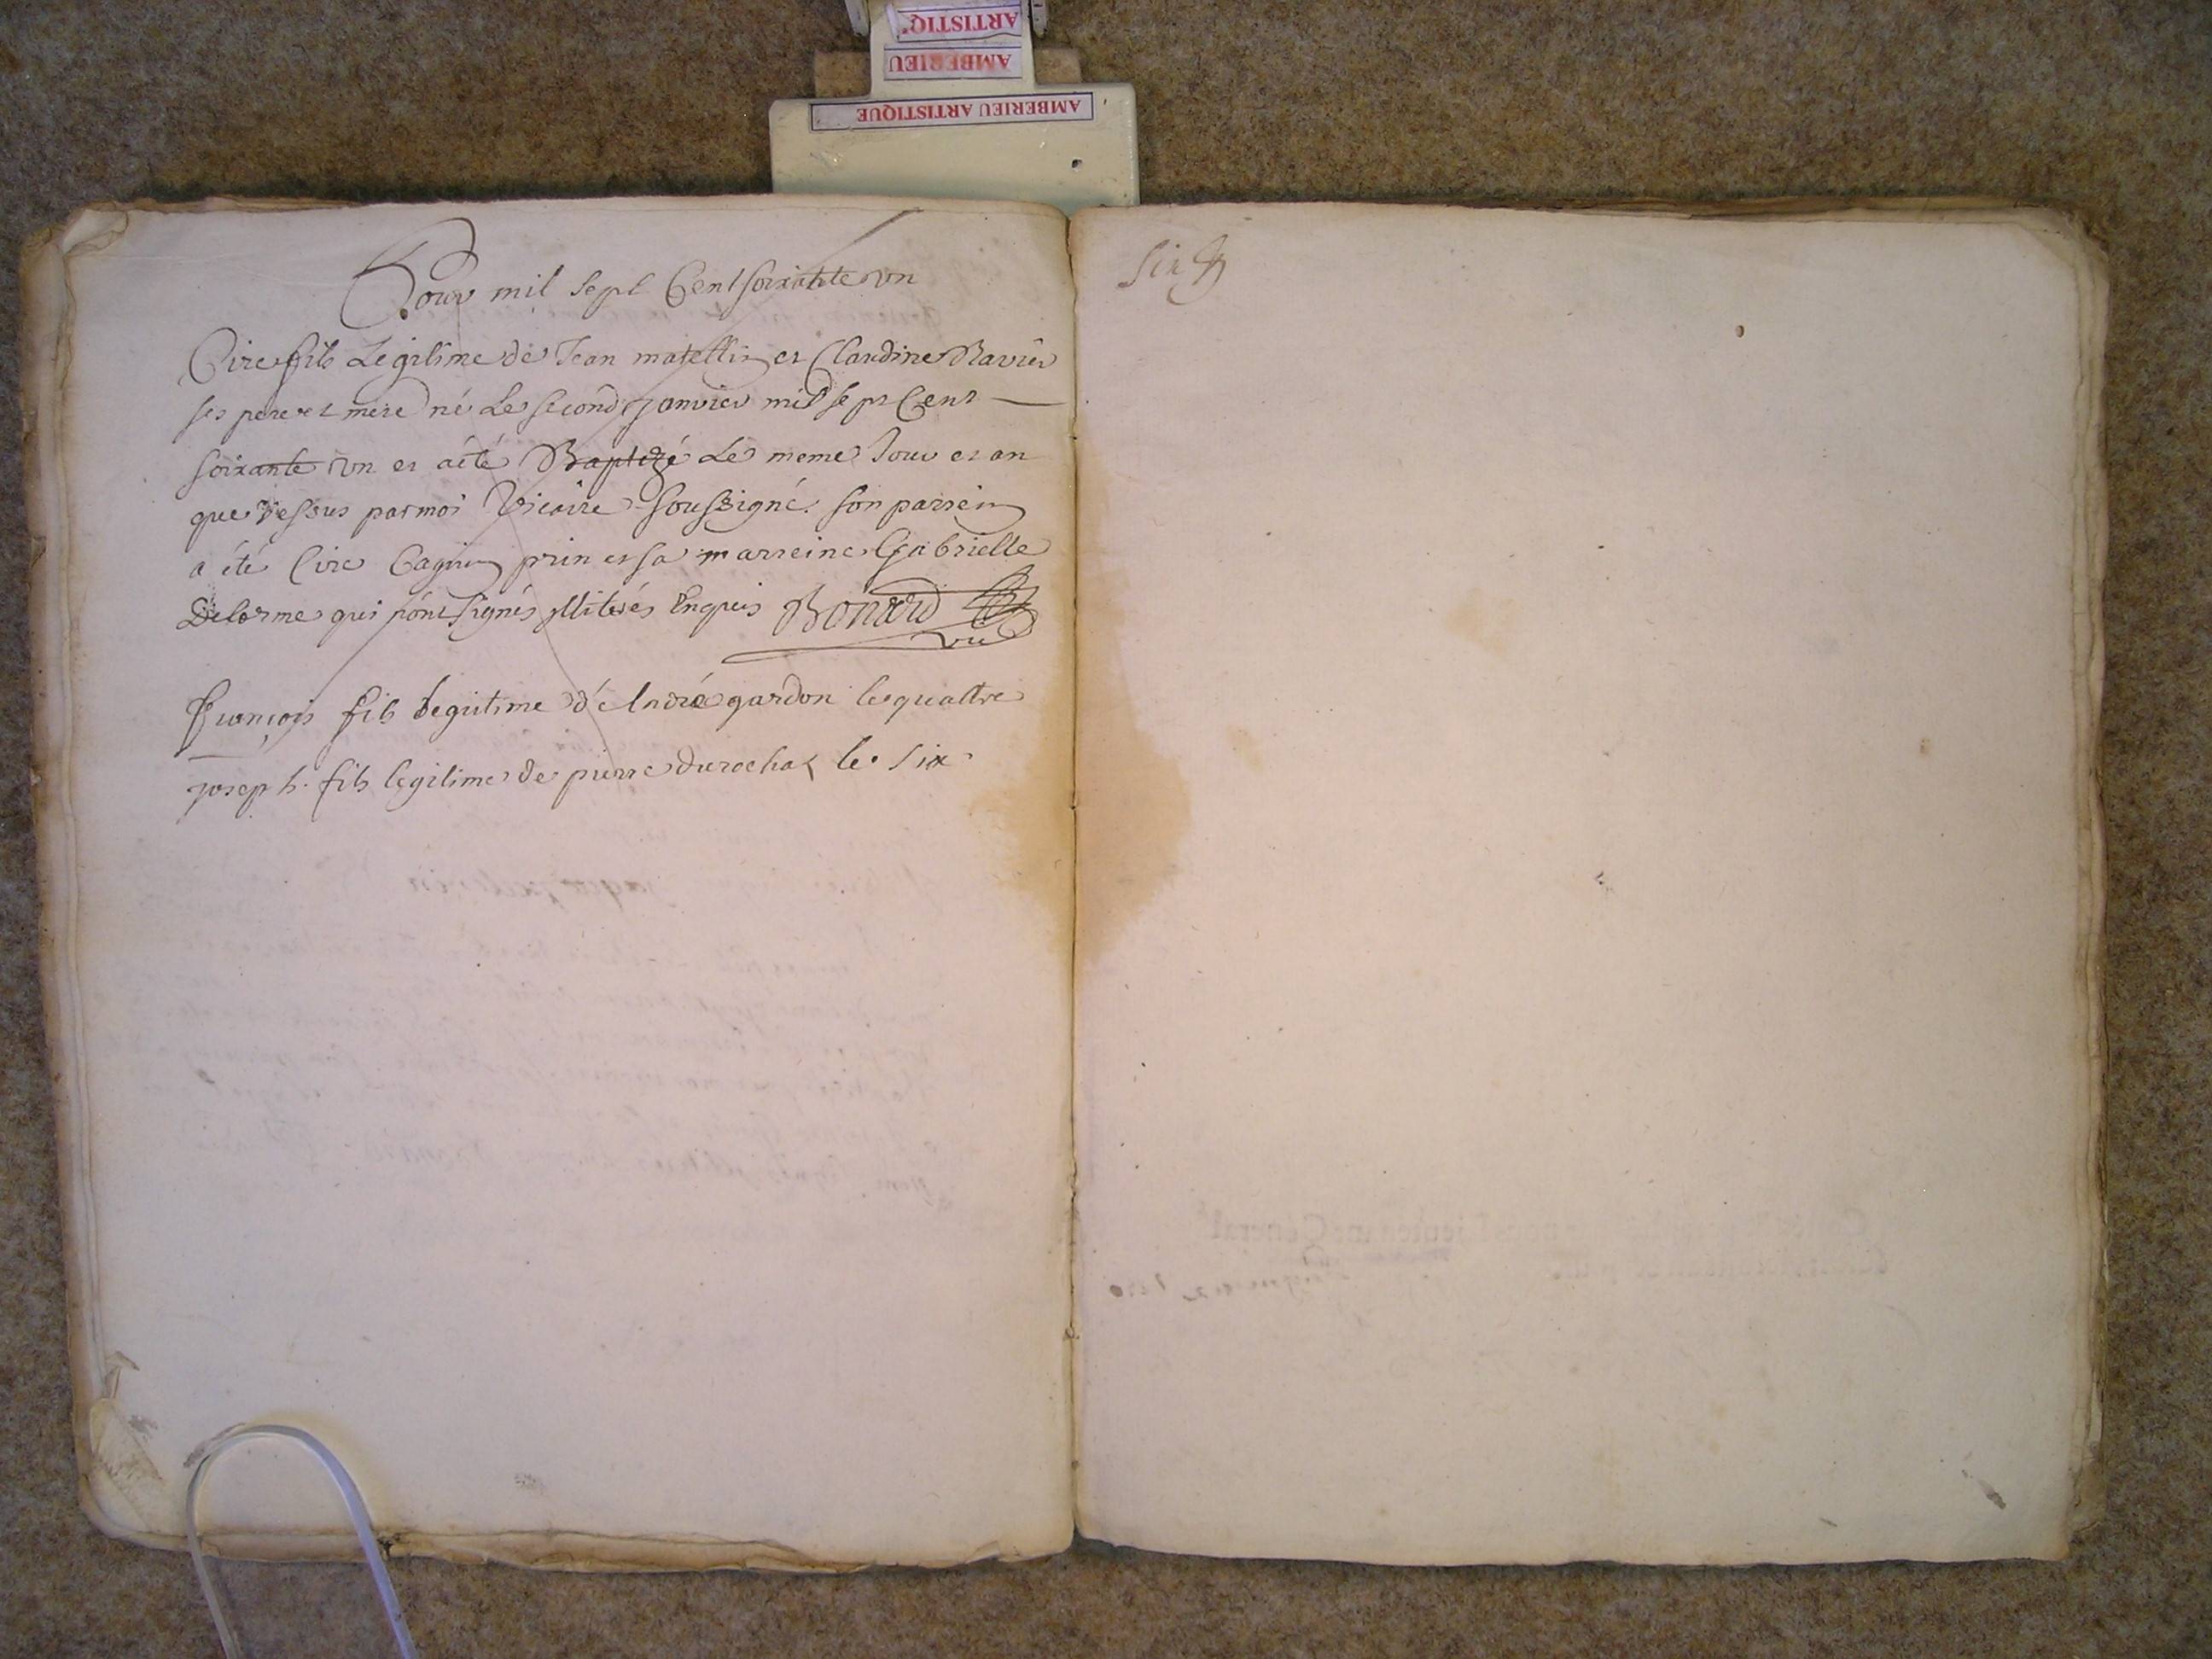 ARTISTIQ'
AMBERIEU
AMBERIEU ARTISTIQUE
Pour mil sept Cent soixante un
Cire fils Legitime de Jean matellin et Claudine Ravier
ses pere et mere né Le second janvier mil sept Cent
soixante un et a été Baptizé Le meme Jour et an
que dessus par moi Vicaire soussigné. son parrein
a été Cire Cagnin prin et sa marreine Gabrielle
Delorme qui n'ont signés illiterés Enquis Bonard
vic
François fils legitime d'André gardon le quattre
joseph fils legitime de pierre durochat le six
six